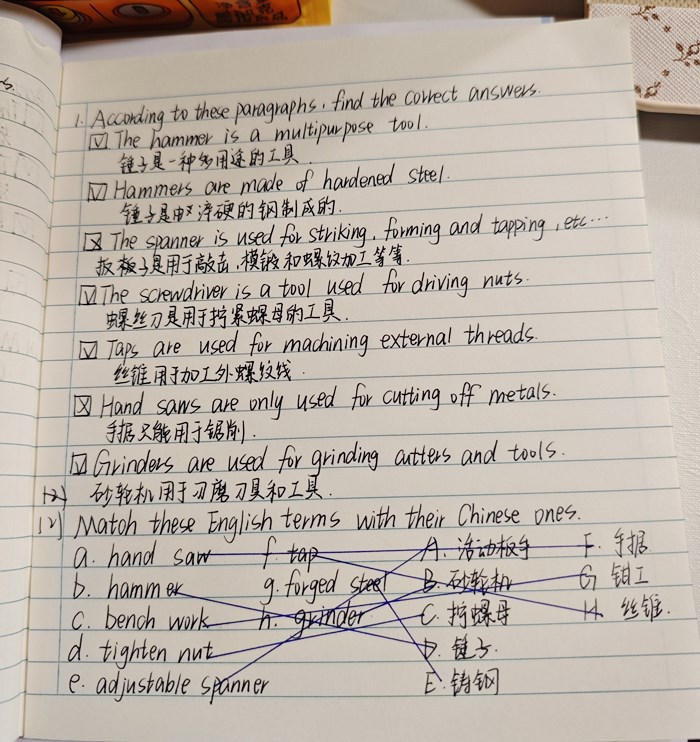 1. According to these paragraphs, find the correct answers.
☑ The hammer is a multipurpose tool.
锤子是一种多用途的工具
☑ Hammers are made of hardened steel.
锤子是由淬硬的钢制成的.
☒ The spanner is used for striking, forming and tapping, etc...
扳子是用于敲击,模锻和螺纹加工等等.
☑ The screwdriver is a tool used for driving nuts.
螺丝刀是用于拧紧螺母的工具.
☑ Taps are used for machining external threads.
丝锥用于加工外螺纹线.
☒ Hand saws are only used for cutting off metals.
手据只能用于锯削.
☑ Grinders are used for grinding cutters and tools.
砂轮机用于刃磨刀具和工具.
(2) Match these English terms with their Chinese ones.
a. hand saw f. tap A. 活动板手 F. 手据
b. hammer g. forged steel B. 砂轮机 G 钳工
c. bench work h. grinder C. 拧螺母 H 丝锥.
d. tighten nut D. 锤子.
e. adjustable spanner E. 铸钢